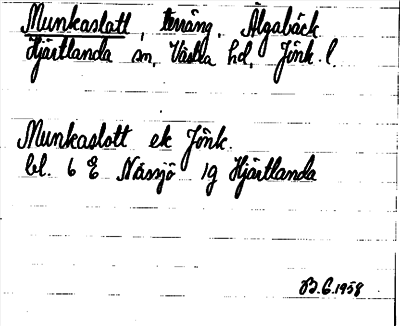 Munkaslatt, terräng, Älgabäck
Hjärtlanda sn, Västra hd, Jönk. l.
Munkaslott ek Jönk.
bl. 6 E Nässjö ig Hjärtlanda
B.G. 1958